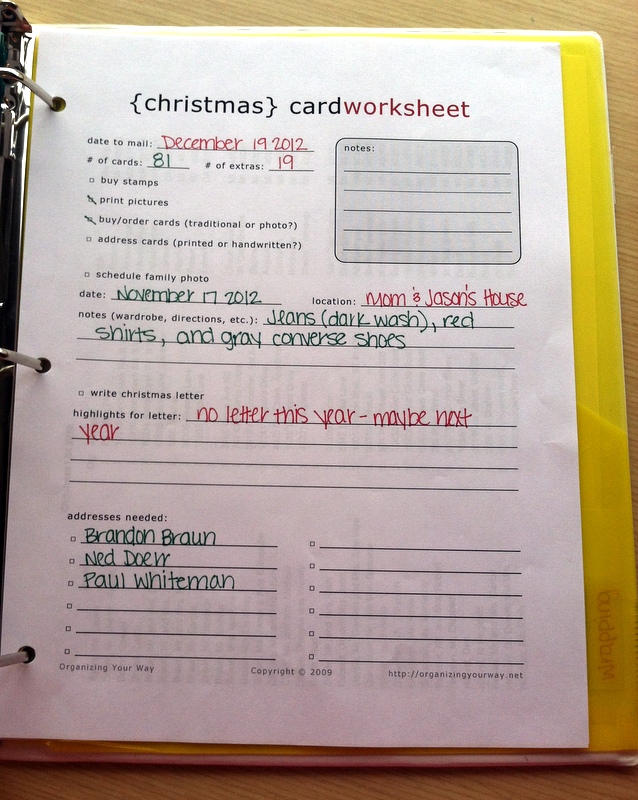 {christmas} cardworksheet
date to mail: December 19 2012
# of cards: 81 # of extras: 19
notes:
buy stamps
print pictures
buy/order cards (traditional or photo?)
address cards (printed or handwritten?)
schedule family photo
date: November 17 2012 location: Mom & Jason's House
notes (wardrobe, directions, etc.): Jeans (dark wash), red
shirts, and gray converse shoes
write christmas letter
highlights for letter: no letter this year - maybe next
year
addresses needed:
Brandon Braun
Ned Doerr
Paul Whiteman
Organizing Your Way Copyright © 2009 http://organizingyourway.net
wrapping